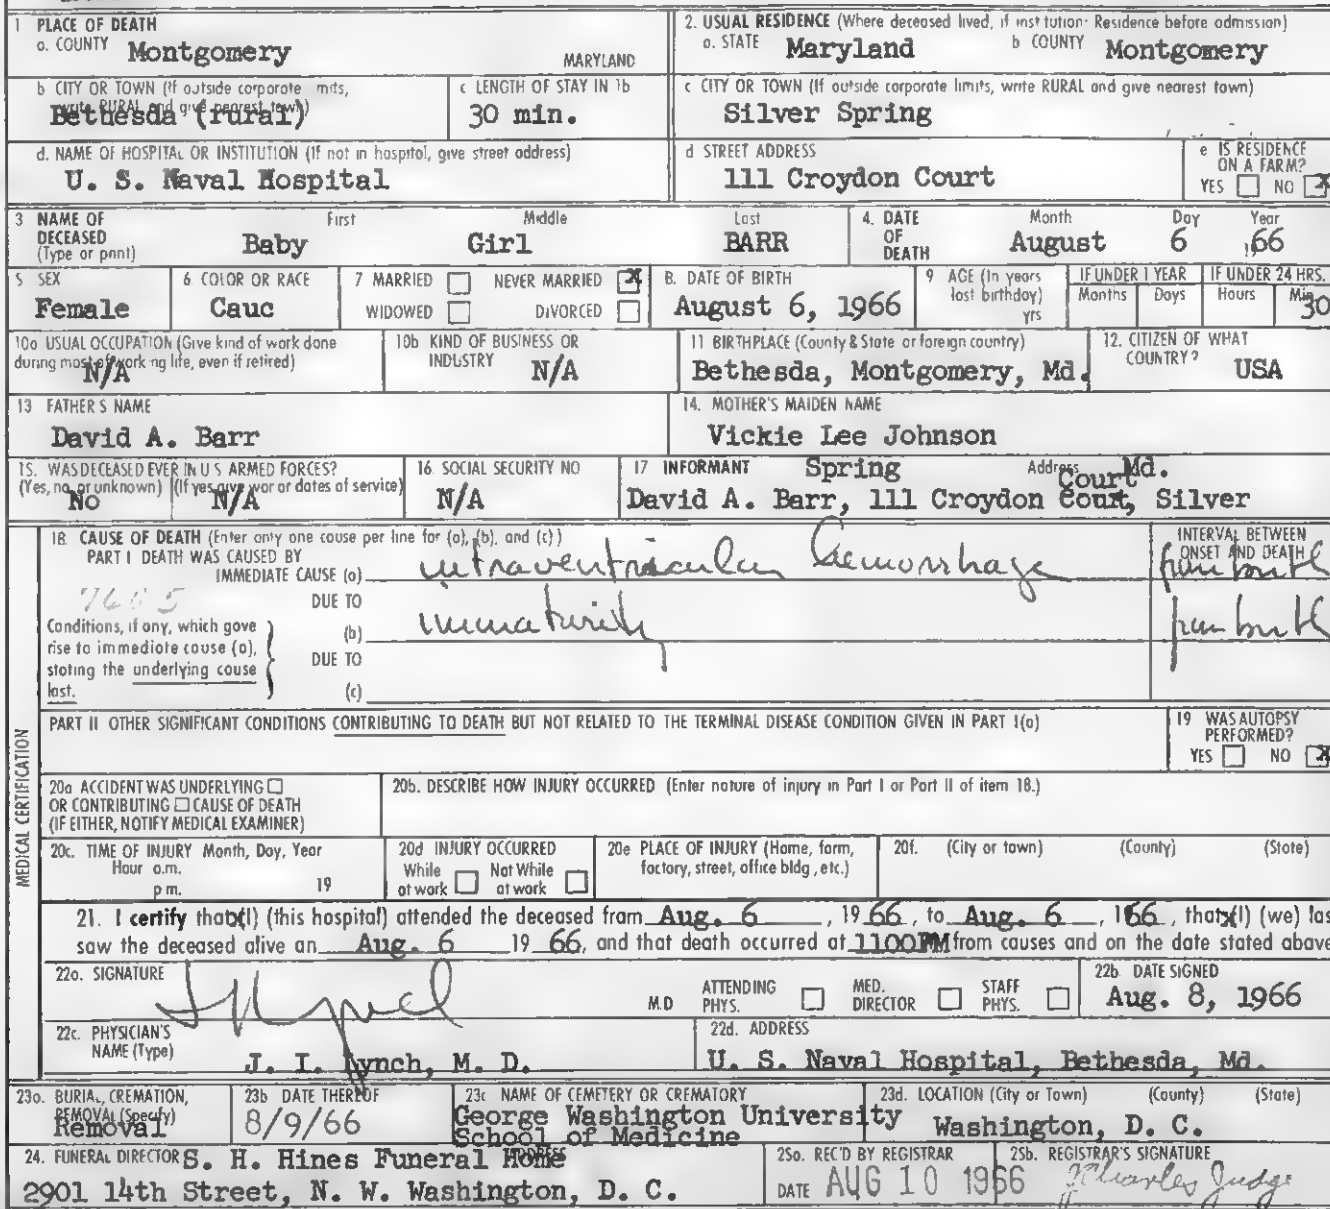 1 PLACE OF DEATH
a. COUNTY Montgomery MARYLAND
2. USUAL RESIDENCE (Where deceased lived, if institution: Residence before admission)
a. STATE Maryland b COUNTY Montgomery
b CITY OR TOWN (If outside corporate mits, write RURAL and give nearest town)
Bethesda (rural)
c LENGTH OF STAY IN 1b
30 min.
c CITY OR TOWN (If outside corporate limits, write RURAL and give nearest town)
Silver Spring
d. NAME OF HOSPITAL OR INSTITUTION (If not in hospital, give street address)
U. S. Naval Hospital
d STREET ADDRESS
111 Croydon Court
e IS RESIDENCE ON A FARM?
YES NO X
3 NAME OF DECEASED (Type or print)
First Middle Last
Baby Girl BARR
4. DATE OF DEATH
Month Day Year
August 6 1966
5 SEX
Female
6. COLOR OR RACE
Cauc
7 MARRIED NEVER MARRIED X
WIDOWED DIVORCED
8. DATE OF BIRTH
August 6, 1966
9 AGE (In years last birthday) yrs
IF UNDER 1 YEAR
Months Days
IF UNDER 24 HRS.
Hours Min
30
10a USUAL OCCUPATION (Give kind of work done during most of work ng life, even if retired)
N/A
10b KIND OF BUSINESS OR INDUSTRY
N/A
11 BIRTHPLACE (County & State or foreign country)
Bethesda, Montgomery, Md.
12. CITIZEN OF WHAT COUNTRY?
USA
13 FATHER'S NAME
David A. Barr
14. MOTHER'S MAIDEN NAME
Vickie Lee Johnson
15. WAS DECEASED EVER IN U S ARMED FORCES?
(Yes, no, or unknown) (If yes give war or dates of service)
No N/A
16. SOCIAL SECURITY NO
N/A
17 INFORMANT Address
Spring Court Md.
David A. Barr, 111 Croydon Court, Silver
MEDICAL CERTIFICATION
18. CAUSE OF DEATH (Enter only one cause per line for (a), (b), and (c))
PART I DEATH WAS CAUSED BY
IMMEDIATE CAUSE (a) intraventricular hemorrhage
INTERVAL BETWEEN ONSET AND DEATH
from birth
7605
DUE TO
(b) immaturity from birth
Conditions, if any, which gave rise to immediate cause (a), stating the underlying cause last.
DUE TO
(c)
PART II OTHER SIGNIFICANT CONDITIONS CONTRIBUTING TO DEATH BUT NOT RELATED TO THE TERMINAL DISEASE CONDITION GIVEN IN PART I(a)
19 WAS AUTOPSY PERFORMED?
YES NO X
20a ACCIDENT WAS UNDERLYING
OR CONTRIBUTING CAUSE OF DEATH
(IF EITHER, NOTIFY MEDICAL EXAMINER)
20b. DESCRIBE HOW INJURY OCCURRED (Enter nature of injury in Part I or Part II of item 18.)
20c. TIME OF INJURY Month, Day, Year
Hour a.m.
p m. 19
20d INJURY OCCURRED
While at work Not While at work
20e PLACE OF INJURY (Home, farm, factory, street, office bldg, etc.)
20f. (City or town) (County) (State)
21. I certify that (I) (this hospital) attended the deceased from Aug. 6, 1966, to Aug. 6, 1966, that (I) (we) las
saw the deceased alive on Aug. 6 1966, and that death occurred at 1100PM from causes and on the date stated above
22a. SIGNATURE
M.D ATTENDING PHYS. MED. DIRECTOR STAFF PHYS.
22b. DATE SIGNED
Aug. 8, 1966
22c. PHYSICIAN'S NAME (Type)
J. I. Lynch, M. D.
22d. ADDRESS
U. S. Naval Hospital, Bethesda, Md.
23a. BURIAL, CREMATION, REMOVAL (Specify)
Removal
23b DATE THEREOF
8/9/66
23c NAME OF CEMETERY OR CREMATORY
George Washington University
School of Medicine
23d. LOCATION (City or Town) (County) (State)
Washington, D. C.
24. FUNERAL DIRECTOR ADDRESS
S. H. Hines Funeral Home
2901 14th Street, N. W. Washington, D. C.
25a. REC'D BY REGISTRAR
DATE AUG 10 1966
25b. REGISTRAR'S SIGNATURE
Charles Judge